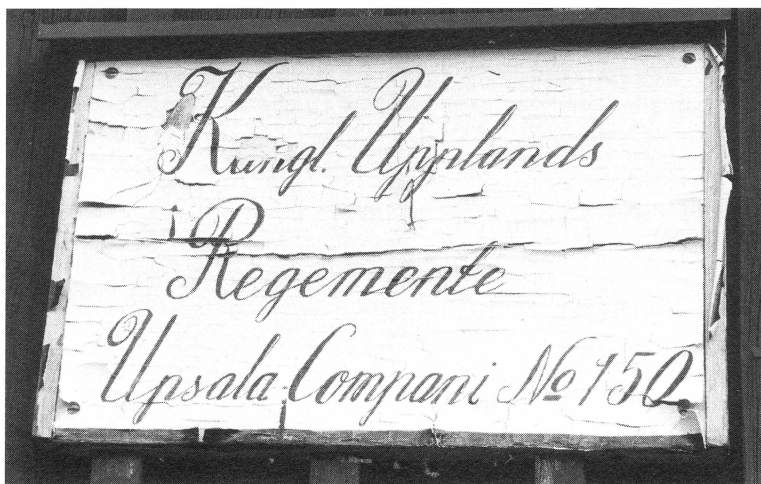 Kungl. Upplands
Regemente
Upsala Compani No 150